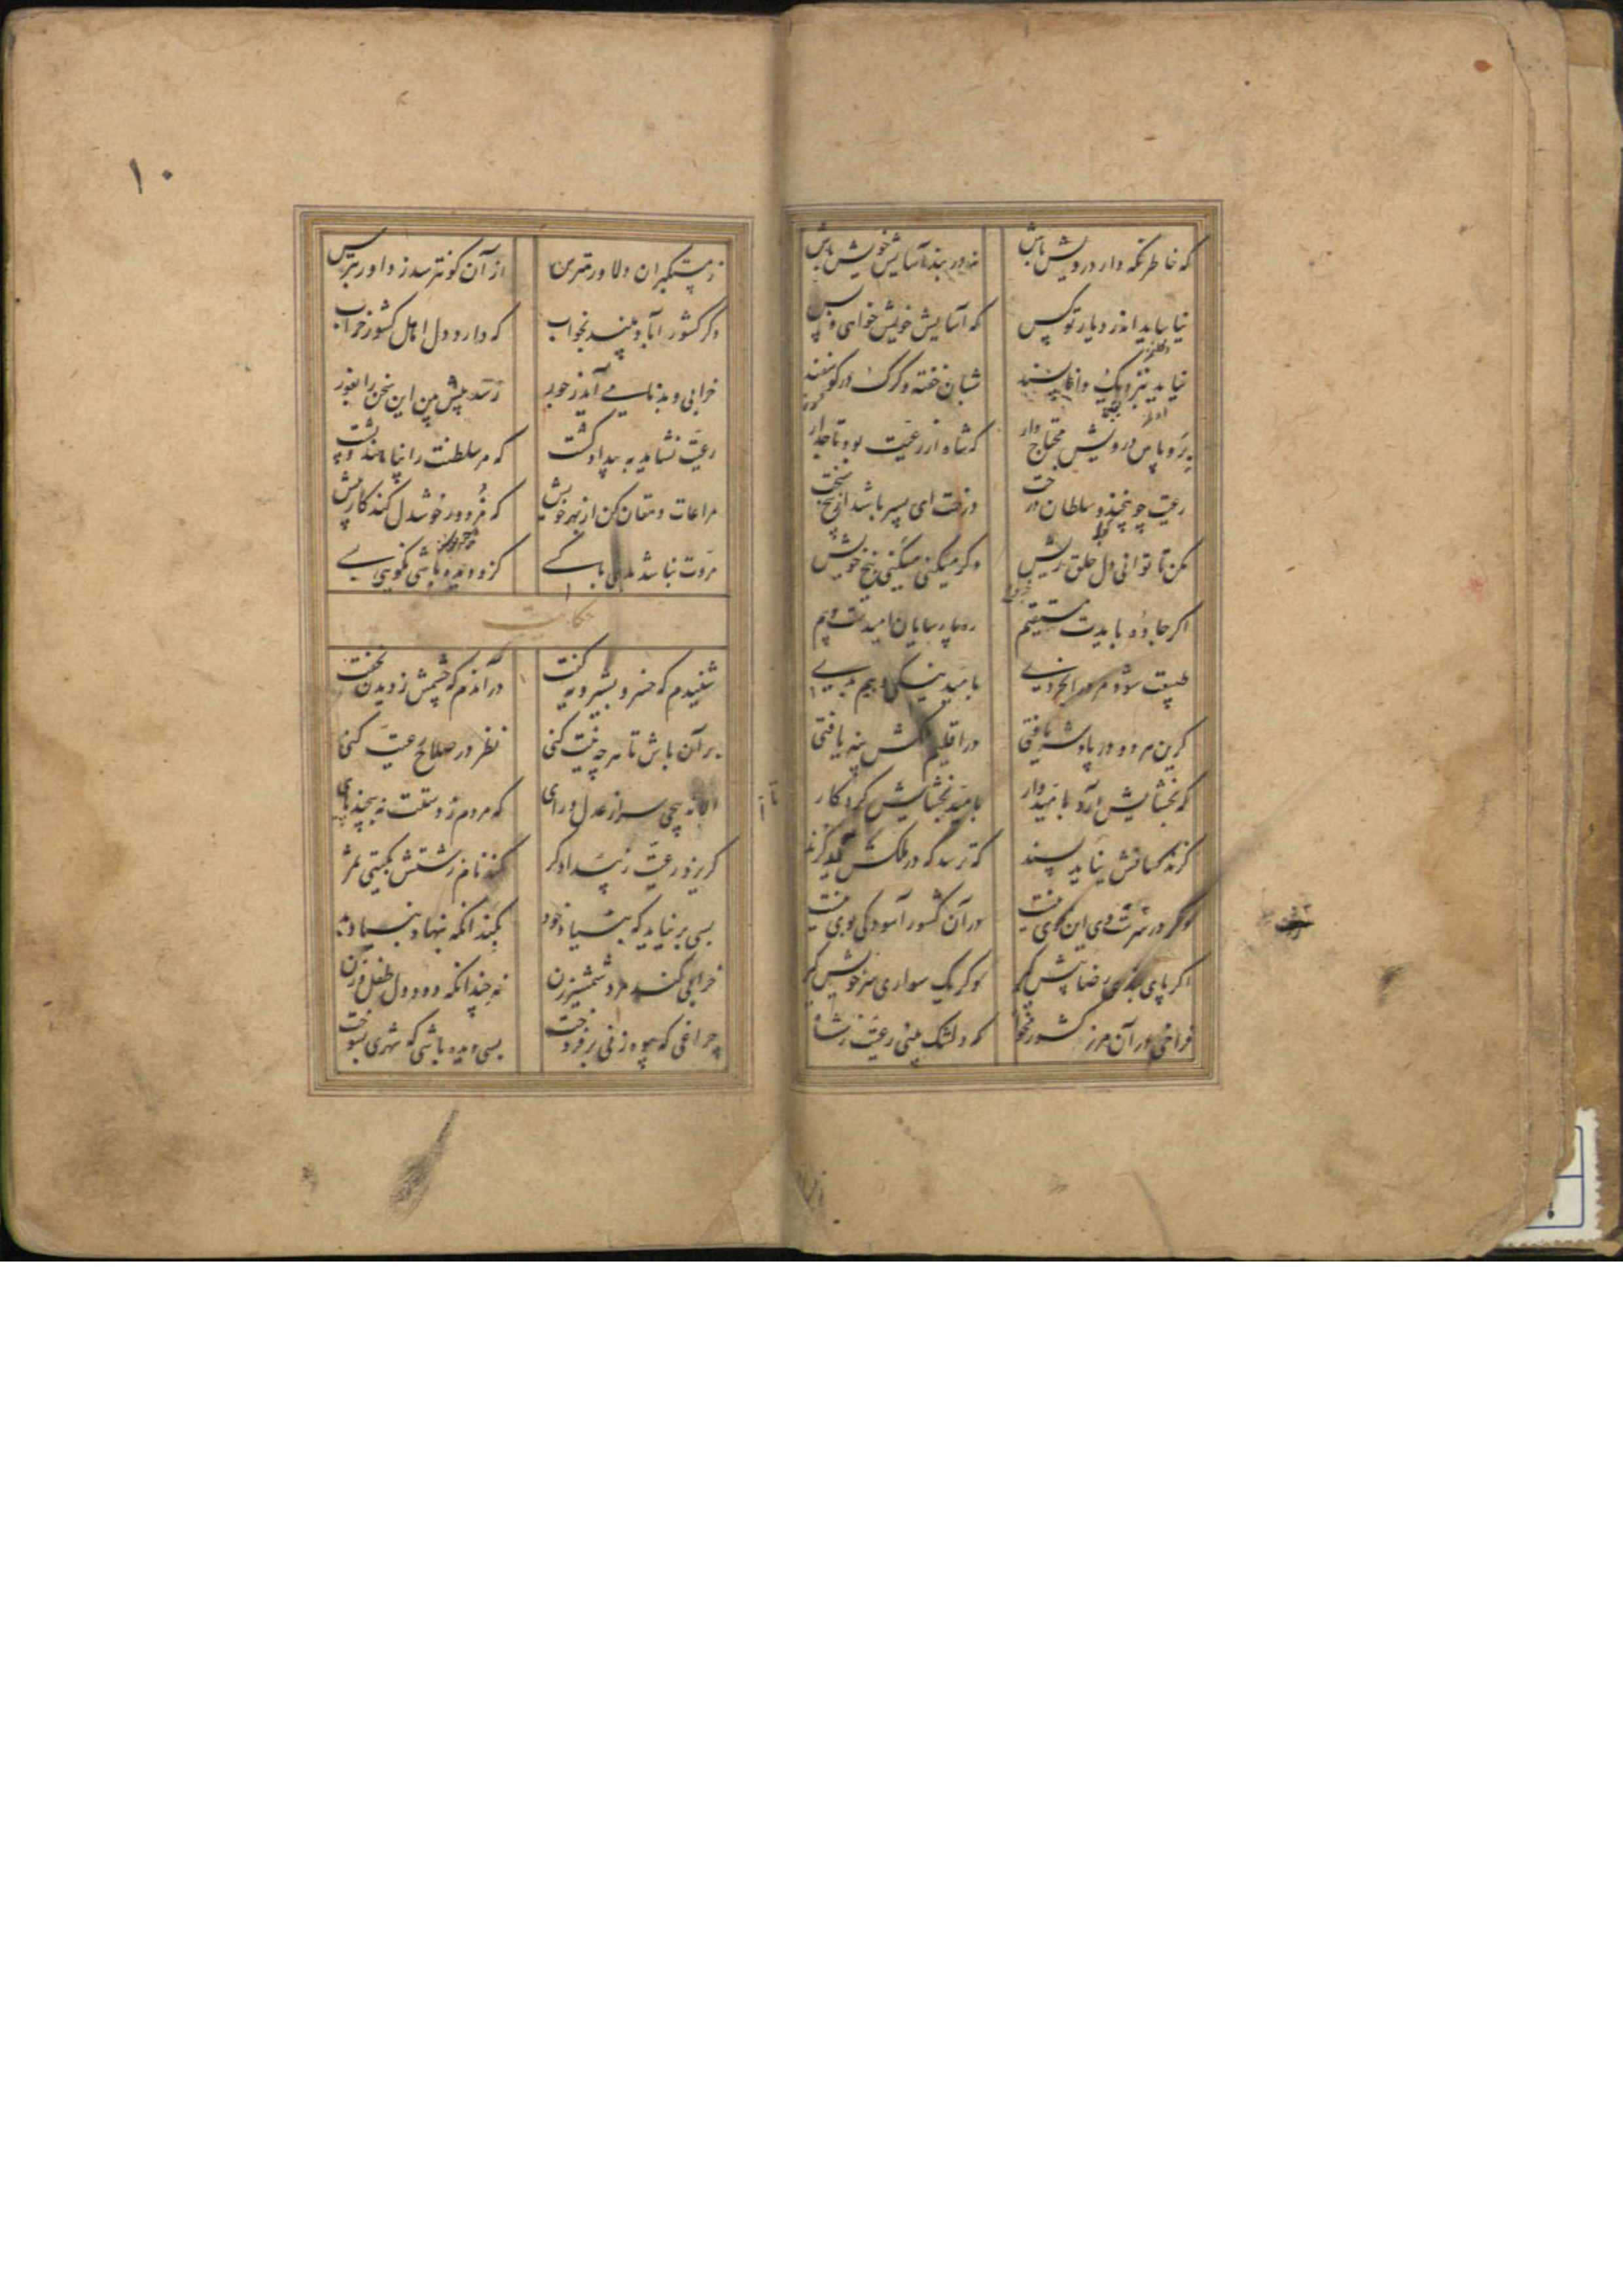 که خاطر نگه دار درویش باش نه در بند آسایش خویش باش
نیاساید اندر دیار تو کس که آسایش خویش خواهی و بس
نیاید بنزدیک دانا پسند شبان خفته و گرگ در گوسفند
برو پاس درویش محتاج دار که شاه از رعیت بود تاجدار
رعیت چو بیخند و سلطان درخت درخت ای پسر باشد از بیخ سخت
مکن تا توانی دل خلق ریش وگر میکنی میکنی بیخ خویش
اگر جاده بایدت مستقیم ره پارسایان امیدست و بیم
طبیعت شود مرد را بخردی بامید نیکی و بیم بدی
گرین هر دو در پادشه یافتی در اقلیم ملکش پنه یافتی
که بخشایش آرد بامیدوار بامید بخشایش کردگار
گزند کسانش نیاید پسند که ترسد که در ملکش آید گزند
وگر در سرشت وی این خوی نیست در آن کشور آسودگی بوی نیست
اگر پای بندی رضا پیش گیر وگر یک سواری سر خویش گیر
فراخی در آن مرز کشور مخواه که دلتنگ بینی رعیت ز شاه
۱۰
ز مستکبران دلاور بترس از آن کو نترسد ز داور بترس
دگر کشور آباد بیند بخواب که دارد دل اهل کشور خراب
خرابی و بدنامی آید ز جور رسد پیش بین این سخن را بغور
رعیت نشاید به بیداد کشت که مر سلطنت را پناهند و پشت
مراعات دهقان کن از بهر خویش که مزدور خوشدل کند کار بیش
مروت نباشد بدی با کسی کزو دیده باشی نکویی بسی
حکایت
شنیدم که خسرو بشیرویه گفت در آندم که چشمش ز دیدن بخفت
بر آن باش تا هرچه نیت کنی نظر در صلاح رعیت کنی
الا تا نپیچی سر از عدل و رای که مردم ز دستت نپیچند پای
گریزد رعیت ز بیدادگر کند نام زشتش بگیتی سمر
بسی بر نیاید که بنیاد خود بکند آنکه بنهاد بنیاد بد
خرابی کند مرد شمشیرزن نه چندانکه دود دل طفل و زن
چراغی که بیوه زنی برفروخت بسی دیده باشی که شهری بسوخت